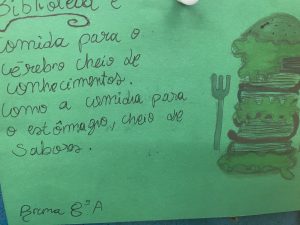 Biblioteca é
comida para o
cérebro cheio de
conhecimentos.
Como a comida para
o estômagro, cheio de
Sabores.
Bruna 8º A